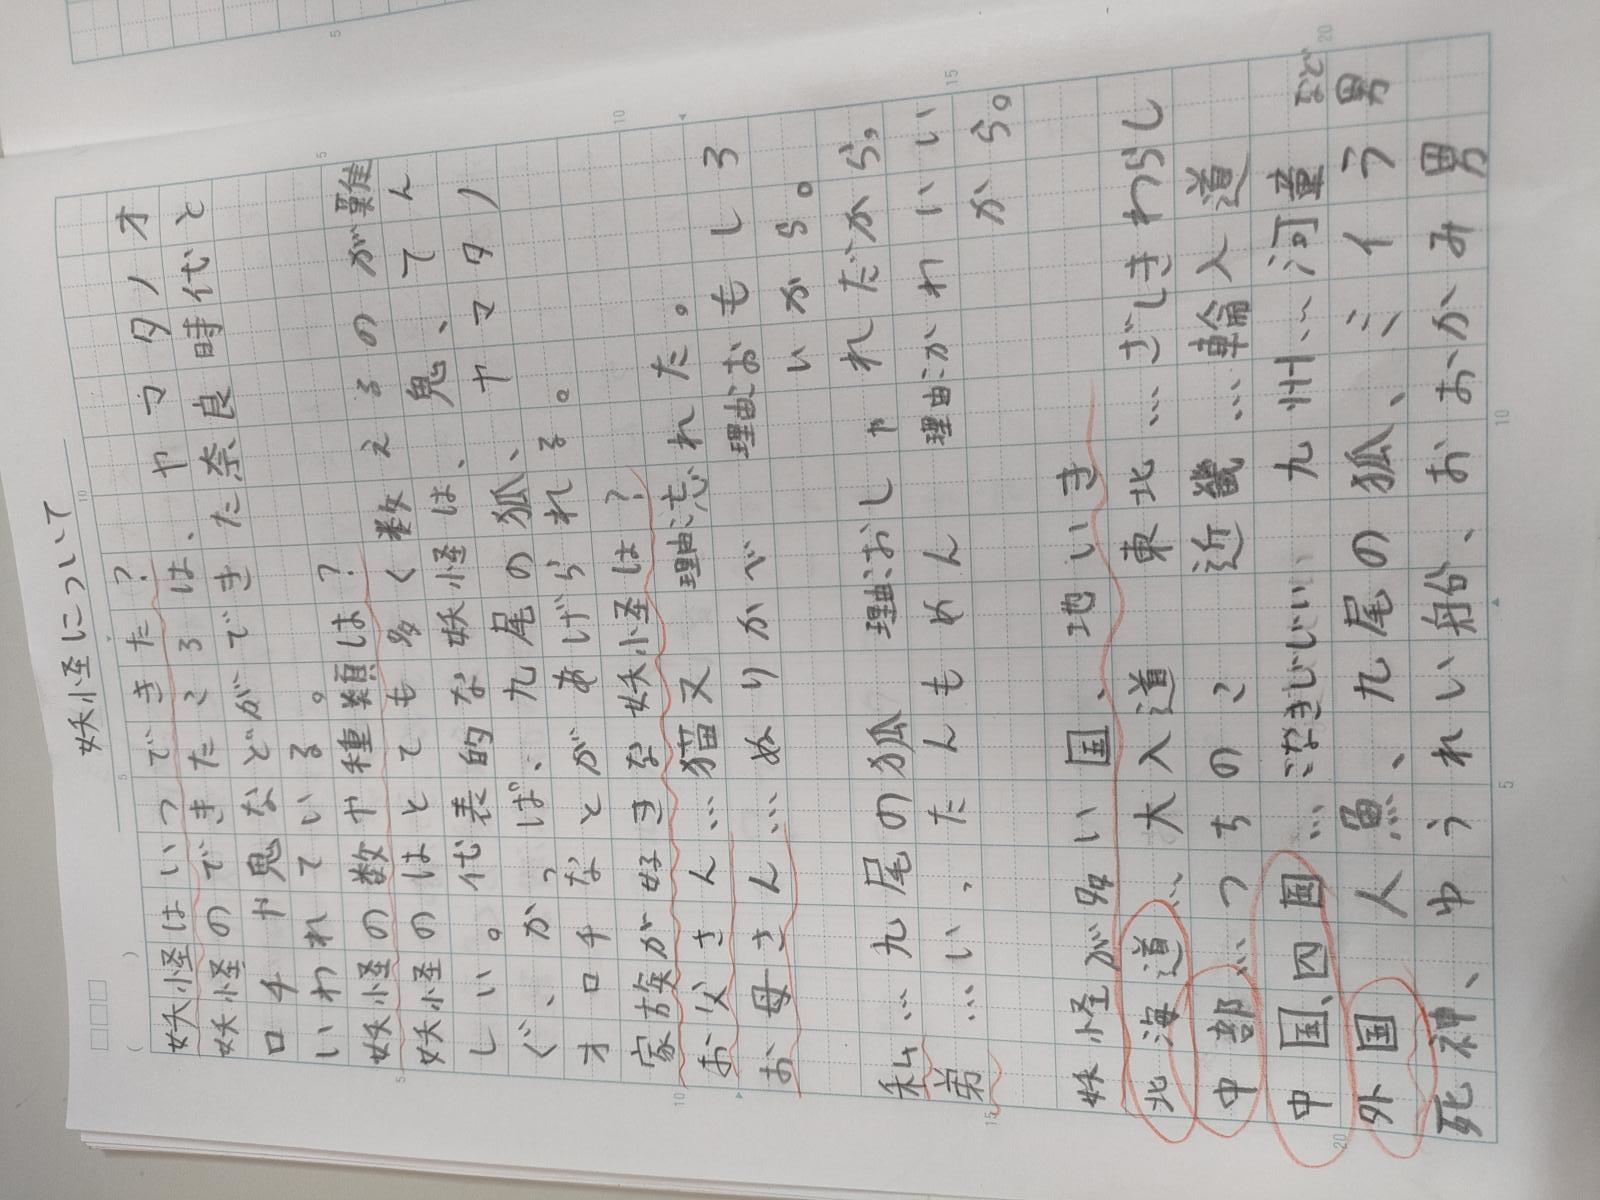 妖怪について
妖怪はいつできた?
妖怪のできたころは、ヤマタノオ
ロチや鬼などができた奈良時代と
いわれている。
妖怪の数や種類は?
妖怪のはとても多く数えるのが難
しい。代表的な妖怪は、鬼、てん
ぐ、かっぱ、九尾の狐、ヤマタノ
オロチなどがあげられる。
家族が好きな妖怪は?
お父さん…猫又 理由:忘れた。
お母さん…ぬりかべ 理由:おもしろ
いから。
私…九尾の狐 理由:おしゃれだから。
弟…いったんもめん 理由:かわいい
から。
妖怪が多い国、地いき
北海道…大入道 東北…ざしきわらし
中部…つちのこ 近畿…輪入道
中国、四国…こなきじじい 九州…河童など
外国…人魚、九尾の狐、ミイラ男
死神、ゆうれい船、おおかみ男